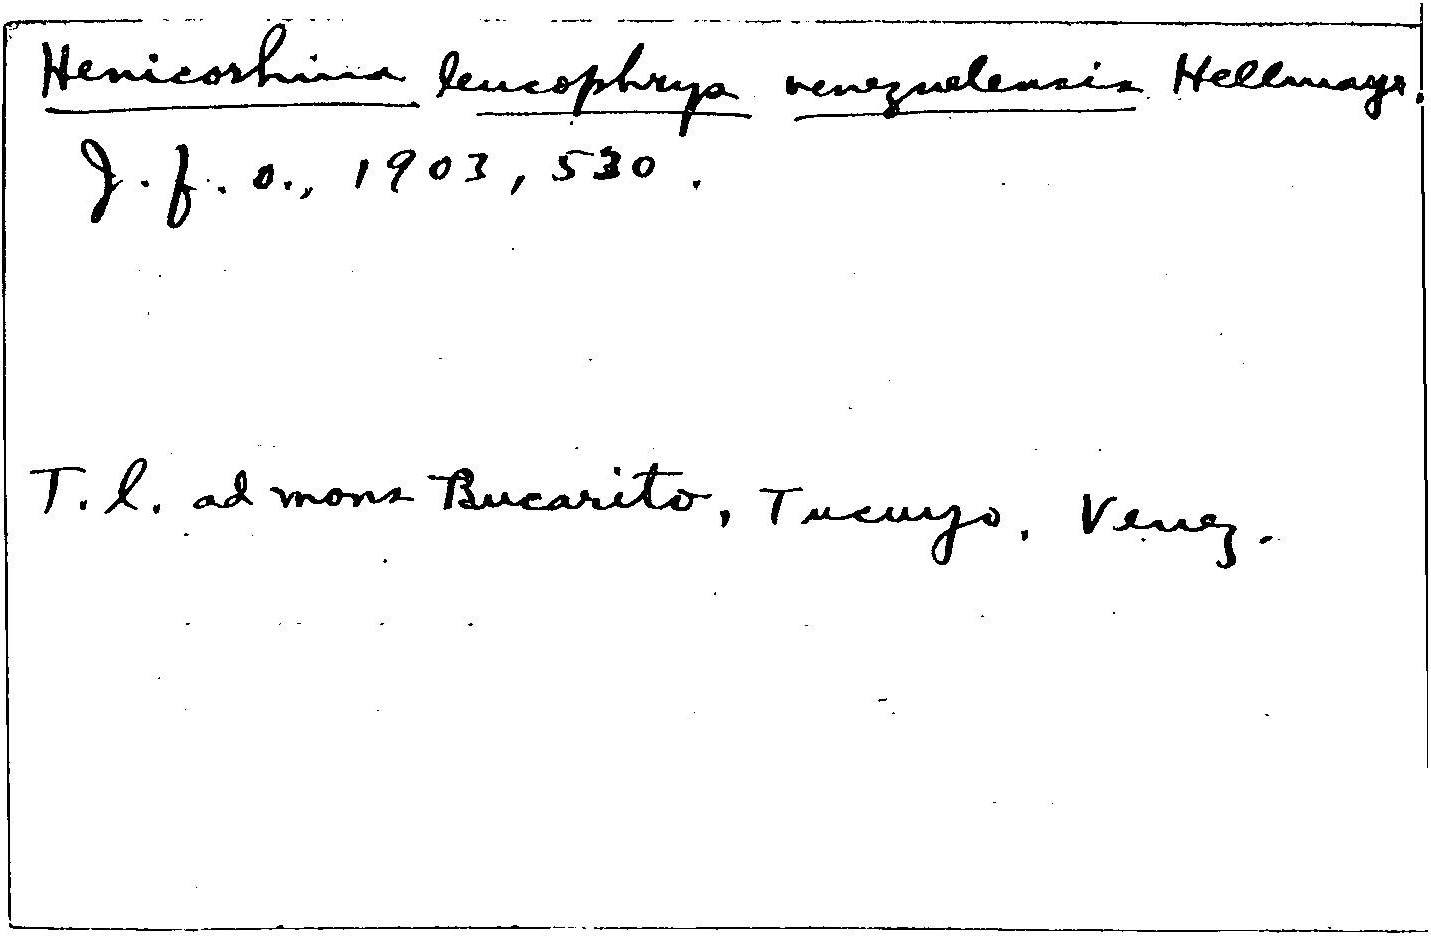 Henicorhina leucophrys venezuelensis Hellmayr.
J. f. O., 1903, 530.
T. l. ad mons Bucarito, Tucuyo, Venez.